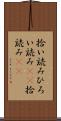 拾い読みひろ
い読み 拾
読み